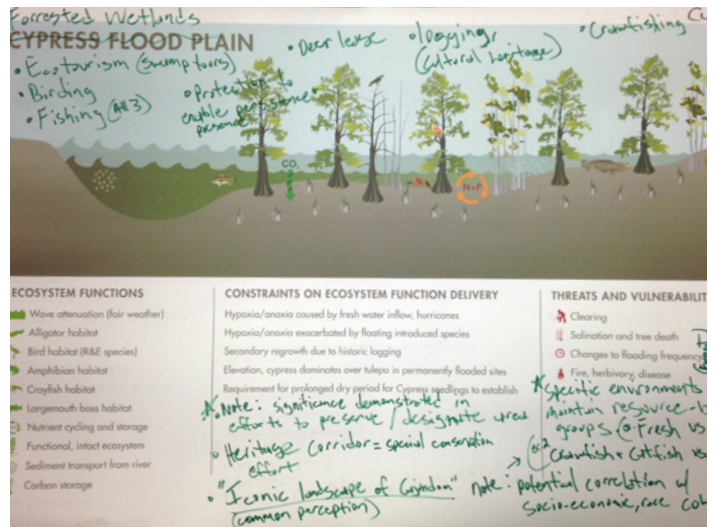 Forrested Wetlands
CYPRESS FLOOD PLAIN
• Ecotourism (swamp tours)
• Birding
• Fishing (all 3)
• Deer lease
• Protection to
enable persistence
presence
• logging
(cultural heritage)
• Crawfishing
CO2
N+P
ECOSYSTEM FUNCTIONS
Wave attenuation (fair weather)
Alligator habitat
Bird habitat (R&E species)
Amphibian habitat
Crayfish habitat
Largemouth bass habitat
Nutrient cycling and storage
Functional, intact ecosystem
Sediment transport from river
Carbon storage
CONSTRAINTS ON ECOSYSTEM FUNCTION DELIVERY
Hypoxia/anoxia caused by fresh water inflow, hurricanes
Hypoxia/anoxia exacerbated by floating introduced species
Secondary regrowth due to historic logging
Elevation, cypress dominates over tulepo in permanently flooded sites
Requirement for prolonged dry period for Cypress seedlings to establish
Note: significance demonstrated in
efforts to preserve/designate
• Heritage Corridor = special
effort
• "Iconic landscape of Cajundom"
(common perception)
THREATS AND VULNERABILIT
Clearing
Salination and tree death
Changes to flooding frequency
Fire, herbivory, disease
specific environments
maintain resource-b
groups (e. Fresh vs
Crawfish + Catfish vs
note: potential correlation w/
socio-economic, race